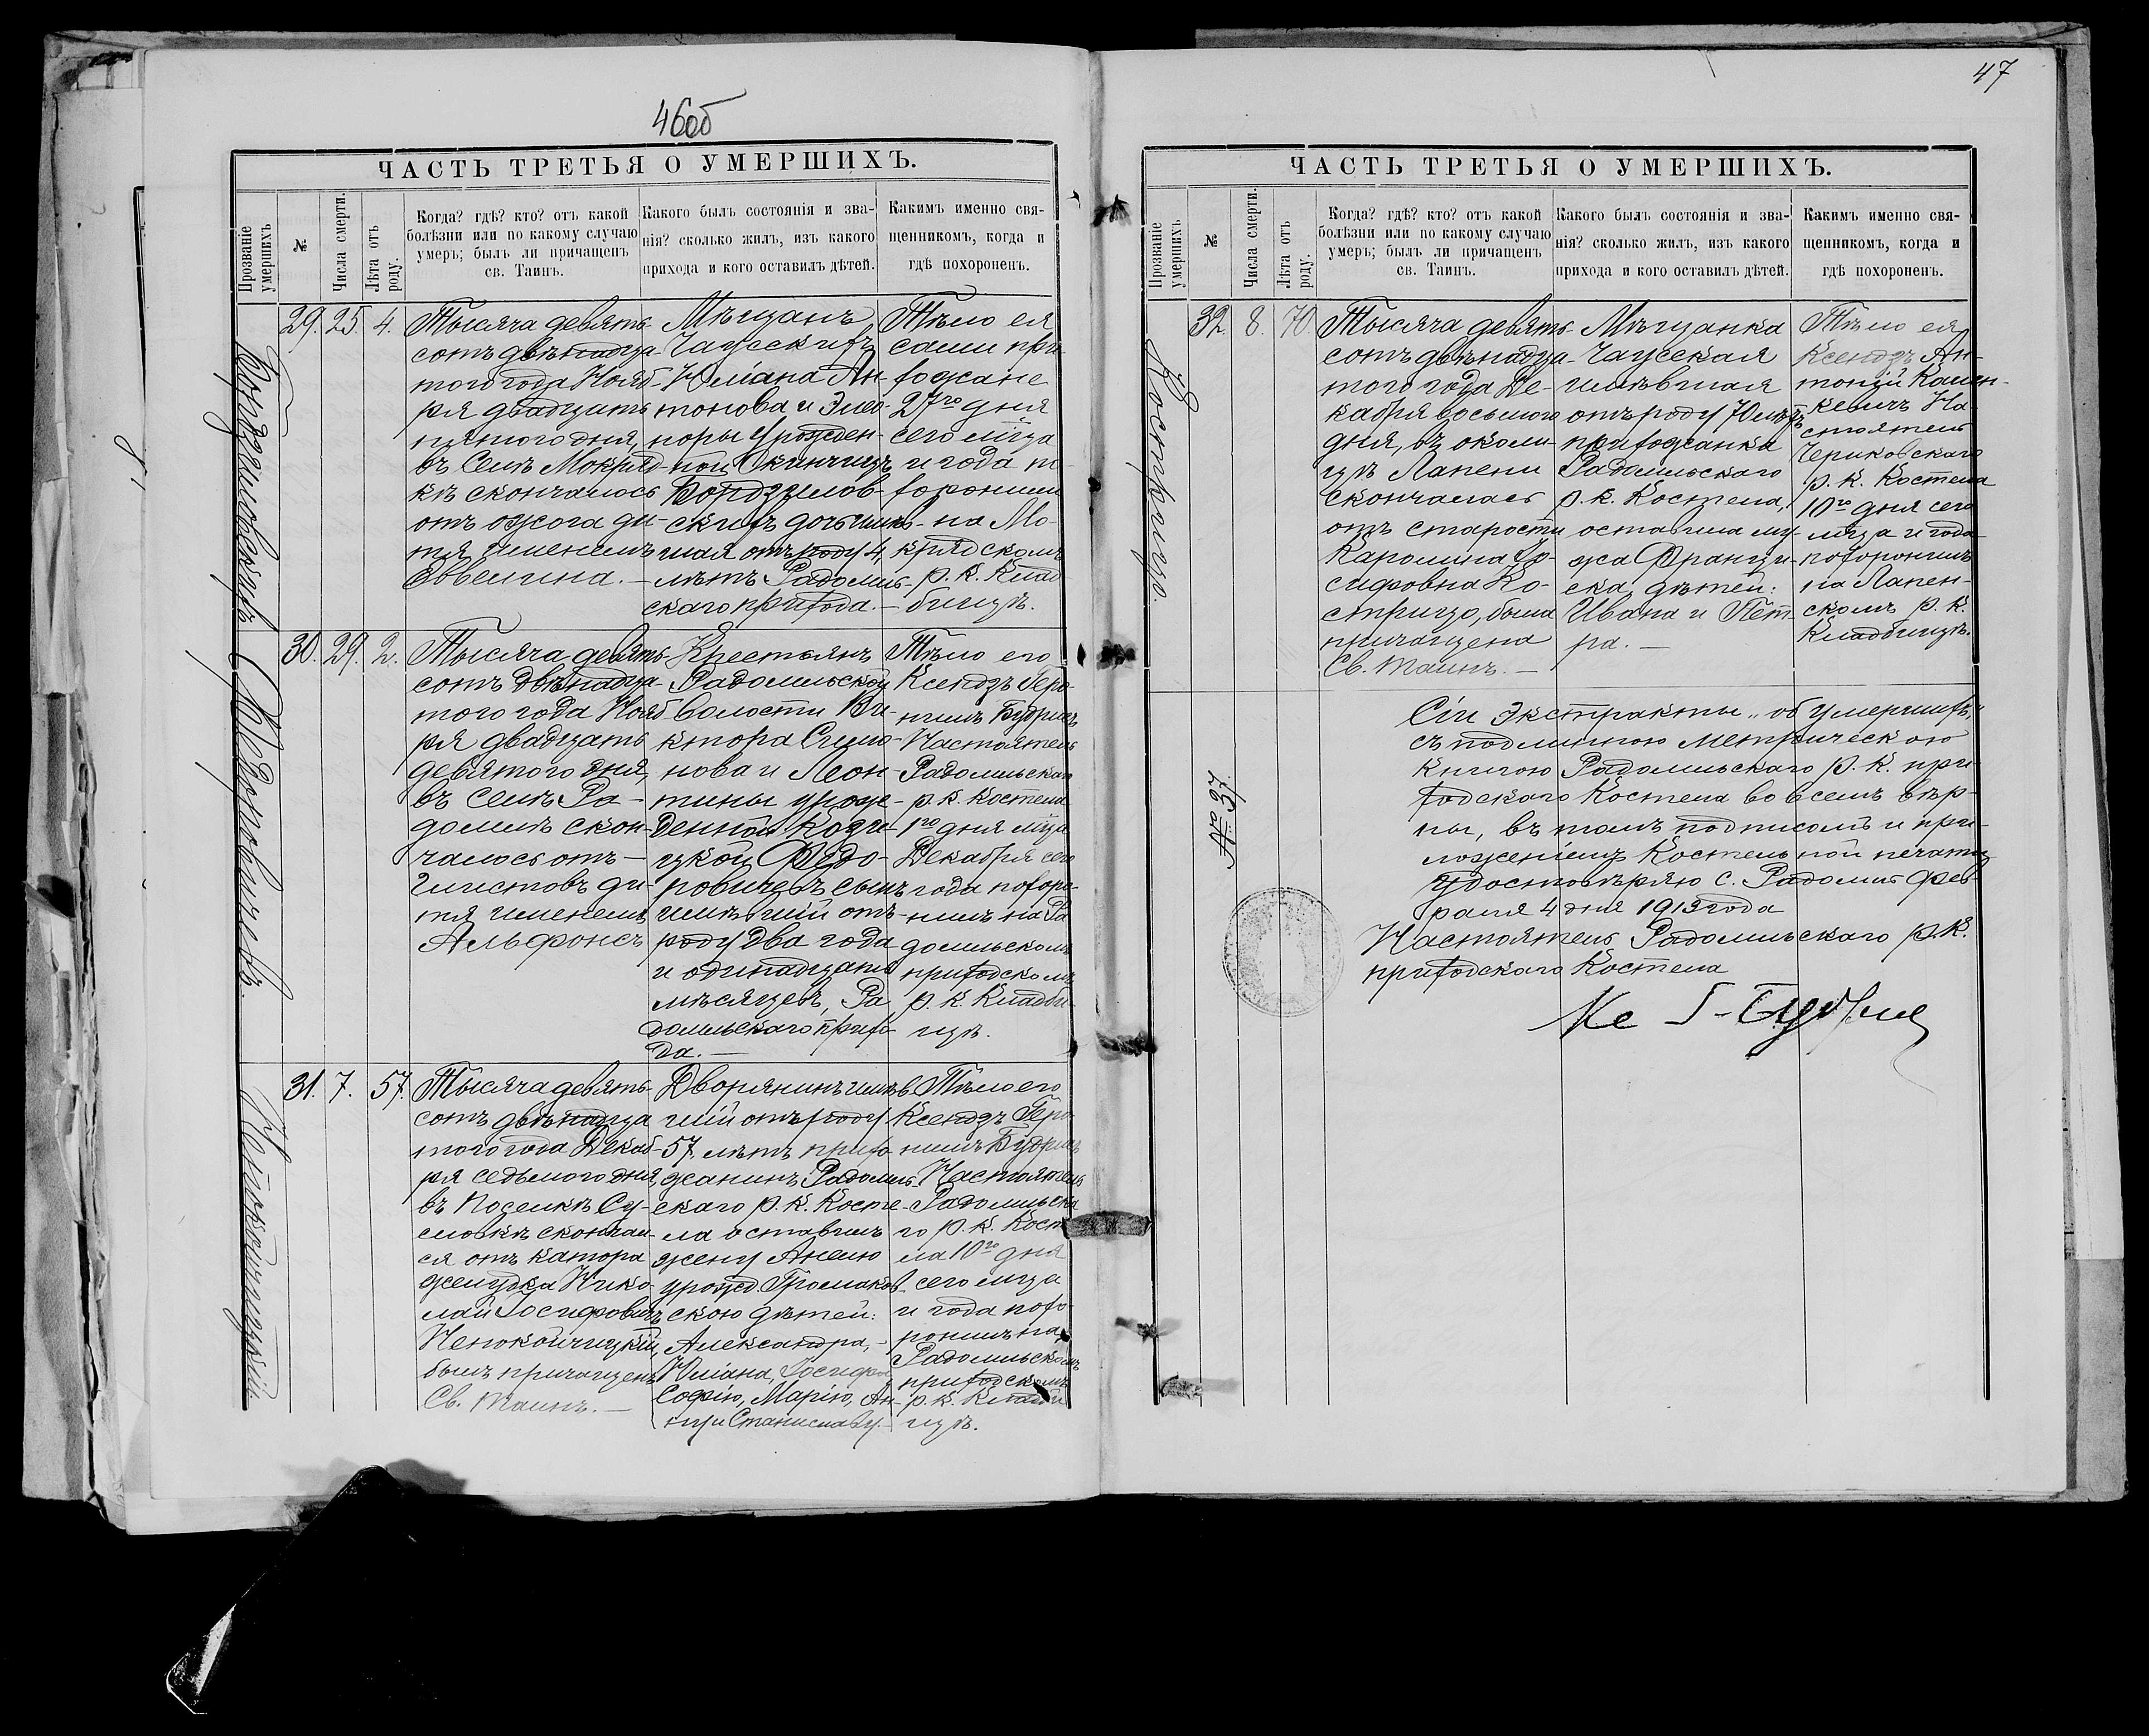 46об
ЧАСТЬ ТРЕТЬЯ О УМЕРШИХЪ.
Прозваніе умершихъ
№
Числа смерти.
Лѣта отъ роду.
Когда? гдѣ? кто? отъ какой
болѣзни или по какому случаю
умеръ; былъ ли причащенъ
св. Таинъ.
Какого былъ состоянія и зва-
нія? сколько жилъ, изъ какого
прихода и кого оставилъ дѣтей.
Какимъ именно свя-
щенникомъ, когда и
гдѣ похороненъ.
29. 25. 4.
Тысяча девять-
сотъ двѣнадца-
того года Нояб-
ря двадцать
пятого дня,
въ селѣ Мокряд-
кѣ скончалось
отъ ожога ди-
тя именемъ
Эввелина. —
Мѣщанъ
Чаусскихъ
Юліана Ан-
тонова и Элео-
норы урожден-
ной
скихъ дочь имѣв-
шая отъ роду 4,
лѣтъ Радомль-
скаго прихода. —
Тѣло ея
сами при-
хожане
27го дня
сего мѣца
и года по-
хоронили
на Мо-
крядскомъ
р. к. Клад-
бищѣ.
30. 29. 2.
Тысяча девять-
сотъ двѣнадца-
того года Нояб-
ря двадцать
девятого дня,
въ селѣ Ра-
домлѣ скон-
чалось отъ —
глистовъ ди-
тя именемъ
Альфонсъ
Крестьянъ
Радомльской
волости Ви-
ктора Симо-
нова и Леон-
тины урож-
денной Козче-
цкой Ѳедо-
ровичевъ сынъ
имѣвшій отъ
роду два года
и одинадцать
мѣсяцевъ, Ра
домльскаго прихо-
да. —
Тѣло его
Ксендзъ Геро-
нимъ Будрысъ
Настоятель
Радомльскаго
р. к. Костела
1го дня мѣца
Декабря сего
года похоро-
нилъ на Ра
домльскомъ
приходскомъ
р. к. Кладби-
щѣ.
31. 7. 57.
Тысяча девять-
сотъ двѣнадца
того года Декаб-
ря седьмого дня
въ поселкѣ Су-
словкѣ скончал-
ся отъ катора
желудка Нико-
лай Іосифовичъ
Непокойчицкій,
былъ причащенъ
Св. Таинъ. —
Дворянинъ имѣв-
шій отъ роду
57. лѣтъ прихо
жанинъ Радомль-
скаго р. к. Косте-
ла оставилъ
жену Анелю
урожд. Громаков-
скою дѣтей:
Александра, —
Юліана, Іосифа
Софію, Марію, Ан-
ну и Станиславу. —
Тѣло его
Ксендзъ Геро-
нимъ Будрысъ
Настоятель
Радомльска
го р. к. Косте
ла 10го дня
сего мѣца
и года похо-
ронилъ на
Радомльскомъ
приходскомъ
р. к. Кладби
щѣ.
Ѳедоровичевъ.
Непокойчицкій.
47
ЧАСТЬ ТРЕТЬЯ О УМЕРШИХЪ.
Прозваніе умершихъ
№
Числа смерти.
Лѣта отъ роду.
Когда? гдѣ? кто? отъ какой
болѣзни или по какому случаю
умеръ; былъ ли причащенъ
св. Таинъ.
Какого былъ состоянія и зва-
нія? сколько жилъ, изъ какого
прихода и кого оставилъ дѣтей.
Какимъ именно свя-
щенникомъ, когда и
гдѣ похороненъ.
Костріцо.
32. 8. 70.
Тысяча девять-
сотъ двѣнадца-
того года Де-
кабря восьмого
дня, въ околи-
цѣ Лапени
скончалась
отъ старости
Каролина Іо-
сифовна Ко-
стрицо, была
причащена
Св. таинъ. —
Мѣщанка
Чаусская
имѣвшая
отъ роду 70 лѣтъ
прихожанка
Радомльскаго
р. к. Костела,
оставила му-
жа Францы-
ска, дѣтей:
Ивана и Пет-
ра. —
Тѣло ея
Ксендзъ Ан-
тоній
На-
стоятель
Чериковскаго
р. к. Костела
10го дня сего
мѣца и года
похоронилъ
на Лапен-
скомъ р. к.
Кладбищѣ.
№ 37.
Сіи Экстракты „объ умершихъ"
съ подлинною метрическою
книгою Радомльскаго р. к. при-
ходскаго Костела во всемъ вѣр-
ны, въ томъ подписомъ и при-
ложеніемъ Костельной печати
удостовѣряю с. Радомль Фев-
раля 4 дня 1913 года
Настоятель Радомльскаго р. к.
приходскаго Костела